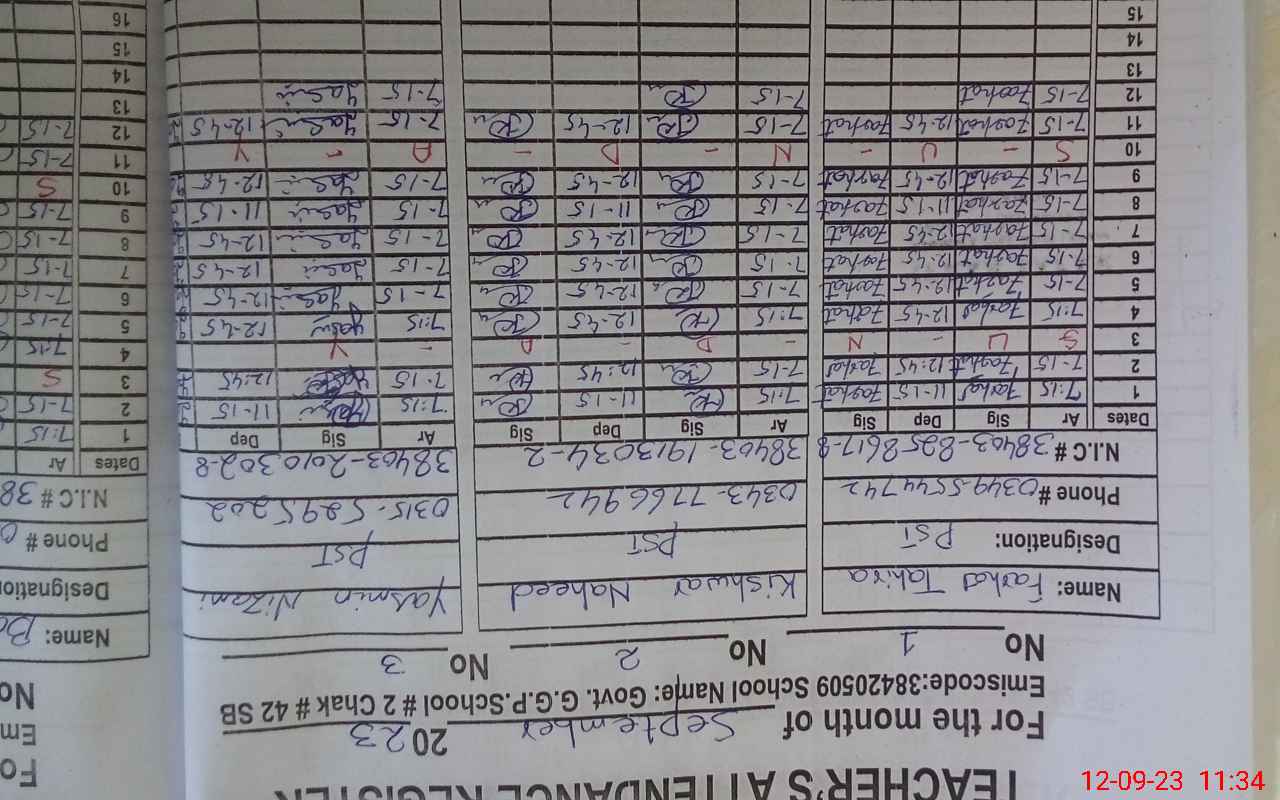 TEACHER'S ATTENDANCE REGISTER
For the month of September 2023
Emiscode:38420509 School Name: Govt. G.G.P.School # 2 Chak # 42 SB
No 1 No 2 No 3
Name: Farhat Tahira Kishwar Naheed Yasmin Nizami
Designation: PST PST PST
Phone # 0349-5544742 0343-7766942 0315-5295202
N.I.C # 38403-8258617-8 38403-1913034-2 38403-2010302-8
Dates Ar Sig Dep Sig Ar Sig Dep Sig Ar Sig Dep
1 7:15 Farhat 11-15 Farhat 7:15 11-15 7:15 11-15
2 7-15 Farhat 12:45 Farhat 7-15 12:45 7-15 12:45
3 S U N - D A - Y
4 7:15 Farhat 12-45 Farhat 7:15 12-45 7:15 Yasmin 12-45
5 7-15 Farhat 12-45 Farhat 7-15 12-45 7-15 Yasmin 12-45
6 7-15 Farhat 12-45 Farhat 7-15 12-45 7-15 Yasmin 12-45
7 7-15 Farhat 12-45 Farhat 7-15 12-45 7-15 Yasmin 12-45
8 7-15 Farhat 11-15 Farhat 7-15 11-15 7-15 Yasmin 11-15
9 7-15 Farhat 12-45 Farhat 7-15 12-45 7-15 Yasmin 12-45
10 S - U - N - D - A - Y
11 7-15 Farhat 12-45 Farhat 7-15 12-45 7-15 Yasmin 12-45
12 7-15 Farhat 7-15 7-15 Yasmin
13
14
15
No
Name:
Designation
Phone # 0
N.I.C # 38
Dates Ar
1 7:15
2 7-15
3 S
4 7:15
5 7-15
6 7-15
7 7-15
8 7-15
9 7-15
10 S
11 7-15
12 7-15
13
14
15
16
12-09-23 11:34